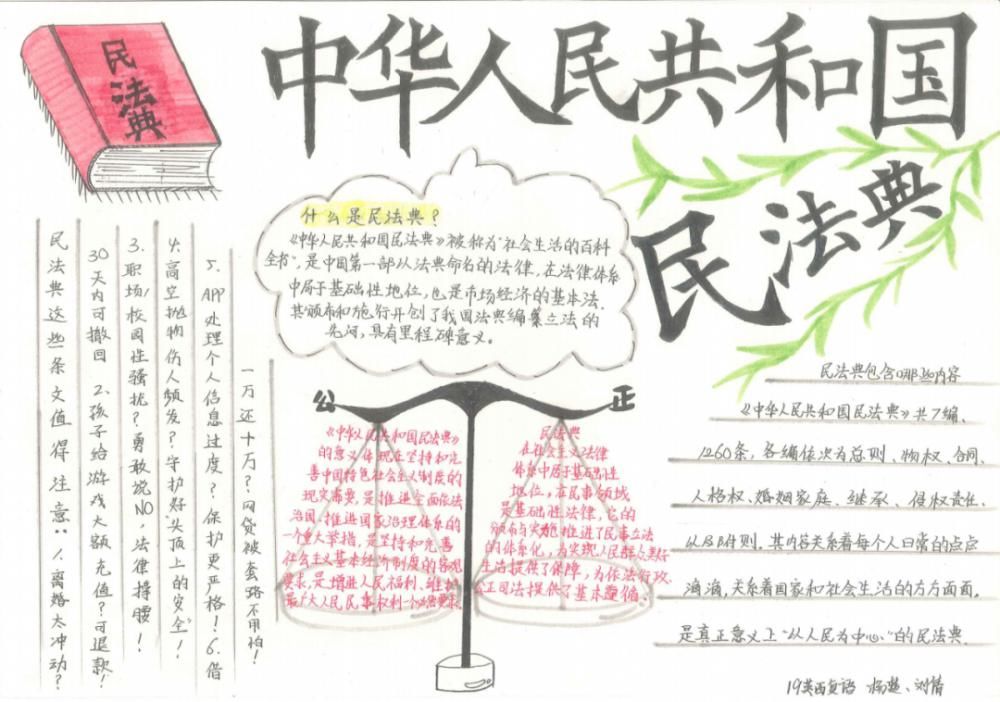 民法典
中华人民共和国
民法典
什么是民法典？
《中华人民共和国民法典》被称为"社会生活的百科
全书"，是中国第一部以法典命名的法律，在法律体系
中居于基础性地位，也是市场经济的基本法．
其颁布和施行开创了我国法典编纂立法的
先河，具有里程碑意义。
民法典这些条文值得注意：1.离婚太冲动？
30天内可撤回 2.孩子给游戏大额充值？可退款！
3.职场/校园性骚扰？勇敢说NO，法律撑腰！
4.高空抛物伤人频发？守护好"头顶上的安全"！
5.APP处理个人信息过度？保护更严格！6.借
一万还十万？网贷被套路不用怕！
公
正
《中华人民共和国民法典》
的意义体现在坚持和完
善中国特色社会主义制度的
现实需要，是推进全面依法
治国、推进国家治理体系的
一个重大举措，是坚持和完善
社会主义基本经济制度的客观
要求，是增进人民福利、维护
最广大人民民事权利一个必然要求．
民法典
在社会主义法律
体系中居于基础性
地位，在民事领域
是基础性法律，它的
颁布与实施，推进了民事立法
的体系化，为实现人民群众美好
生活提供了保障，为依法行政、
公正司法提供了基本遵循。
民法典包含哪些内容
《中华人民共和国民法典》共7编、
1260条，各编依次为总则、物权、合同、
人格权、婚姻家庭、继承、侵权责任、
以及附则。其内容关系着每个人日常的点点
滴滴，关系着国家和社会生活的方方面面。
是真正意义上"以人民为中心"的民法典．
19英西复语 杨楚、刘倩